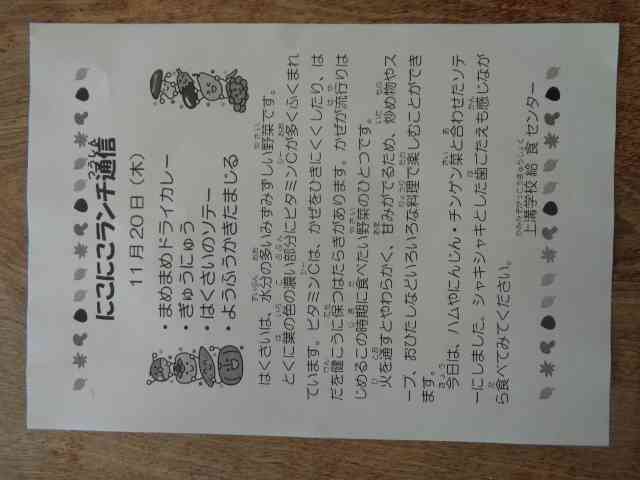 にこにこランチ通信
11月20日(木)
・まめまめドライカレー
・ぎゅうにゅう
・はくさいのソテー
・ようふうかきたまじる
はくさいは、水分の多いみずみずしい野菜です。
とくに葉の色の濃い部分にビタミンCが多くふくまれ
ています。ビタミンCは、かぜをひきにくくしたり、は
だを健こうに保つはたらきがあります。かぜが流行りは
じめるこの時期に食べたい野菜のひとつです。
火を通すとやわらかく、甘みがでるため、炒め物やス
ープ、おひたしなどいろいろな料理で楽しむことができ
ます。
今日は、ハムやにんじん・チンゲン菜と合わせたソテ
ーにしました。シャキシャキとした歯ごたえも感じなが
ら食べてみてください。
上溝学校給食センター